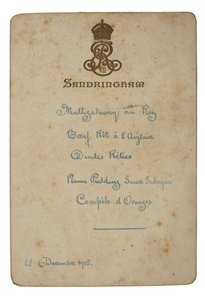 VII
SANDRINGHAM
Mulligatawny au Riz
Bœuf Rôti à l'Anglaise
Dindes Rôties
Plum Pudding, Sauce Sabayon
Compôte d'Oranges
25. Décembre 1905.